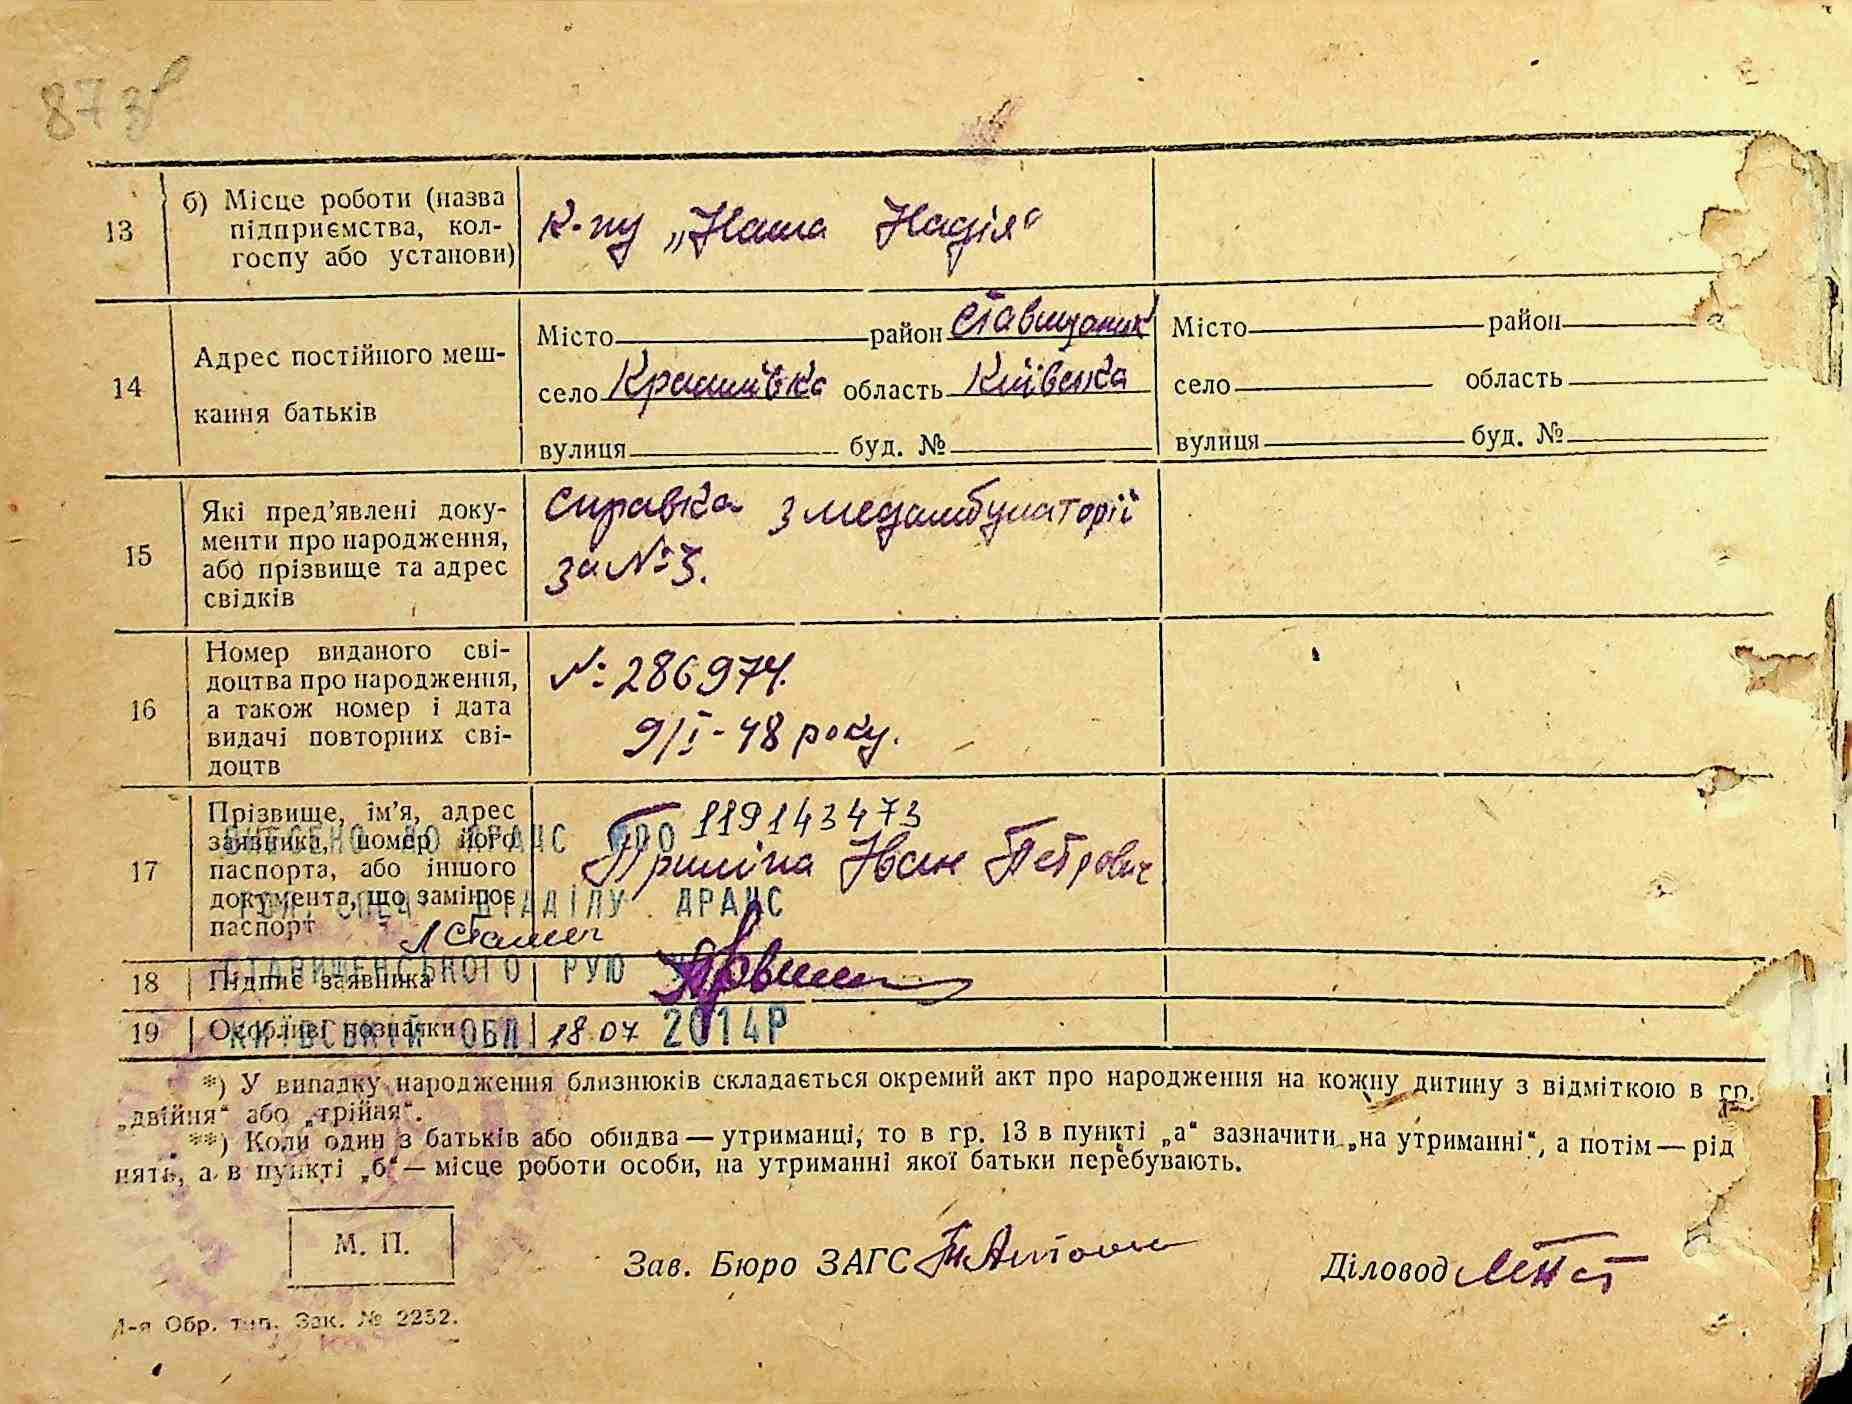 873
13
б) Місце роботи (назва
підприємства, кол-
госпу або установи)
К-пу „Наша Надія“
14
Адрес постійного меш-
кання батьків
Місто район Ставищанськ
село Крашивка область Київська
вулиця буд. №
Місто район
село область
вулиця буд. №
15
Які пред’явлені доку-
менти про народження,
або прізвище та адрес
свідків
справка з медамбулаторії
за №3.
16
Номер виданого сві-
доцтва про народження,
а також номер і дата
видачі повторних сві-
доцтв
№ 286974.
9/I - 48 року.
17
Прізвище, ім’я, адрес
заявника, номер його
паспорта, або іншого
документа, що замінює
паспорт
119143473
Іван Петрович
ВНЕСЕНО ДО ДРАЦС ПРО
ГОЛ. СПЕЦ. ВІДДІЛУ ДРАЦС
СТАВИЩЕНСЬКОГО РУЮ
КИЇВСЬКІЙ ОБЛ 18.07 2014Р
18
Підпис заявника
19
Особливі позначки
*) У випадку народження близнюків складається окремий акт про народження на кожну дитину з відміткою в гр.
„двійня“ або „трійня“.
**) Коли один з батьків або обидва — утриманці, то в гр. 13 в пункті „а“ зазначити „на утриманні“, а потім — рід
нять, а в пункті „б“ — місце роботи особи, на утриманні якої батьки перебувають.
М. П.
Зав. Бюро ЗАГС
Діловод
4-а Обр. тип. Зак. № 2252.